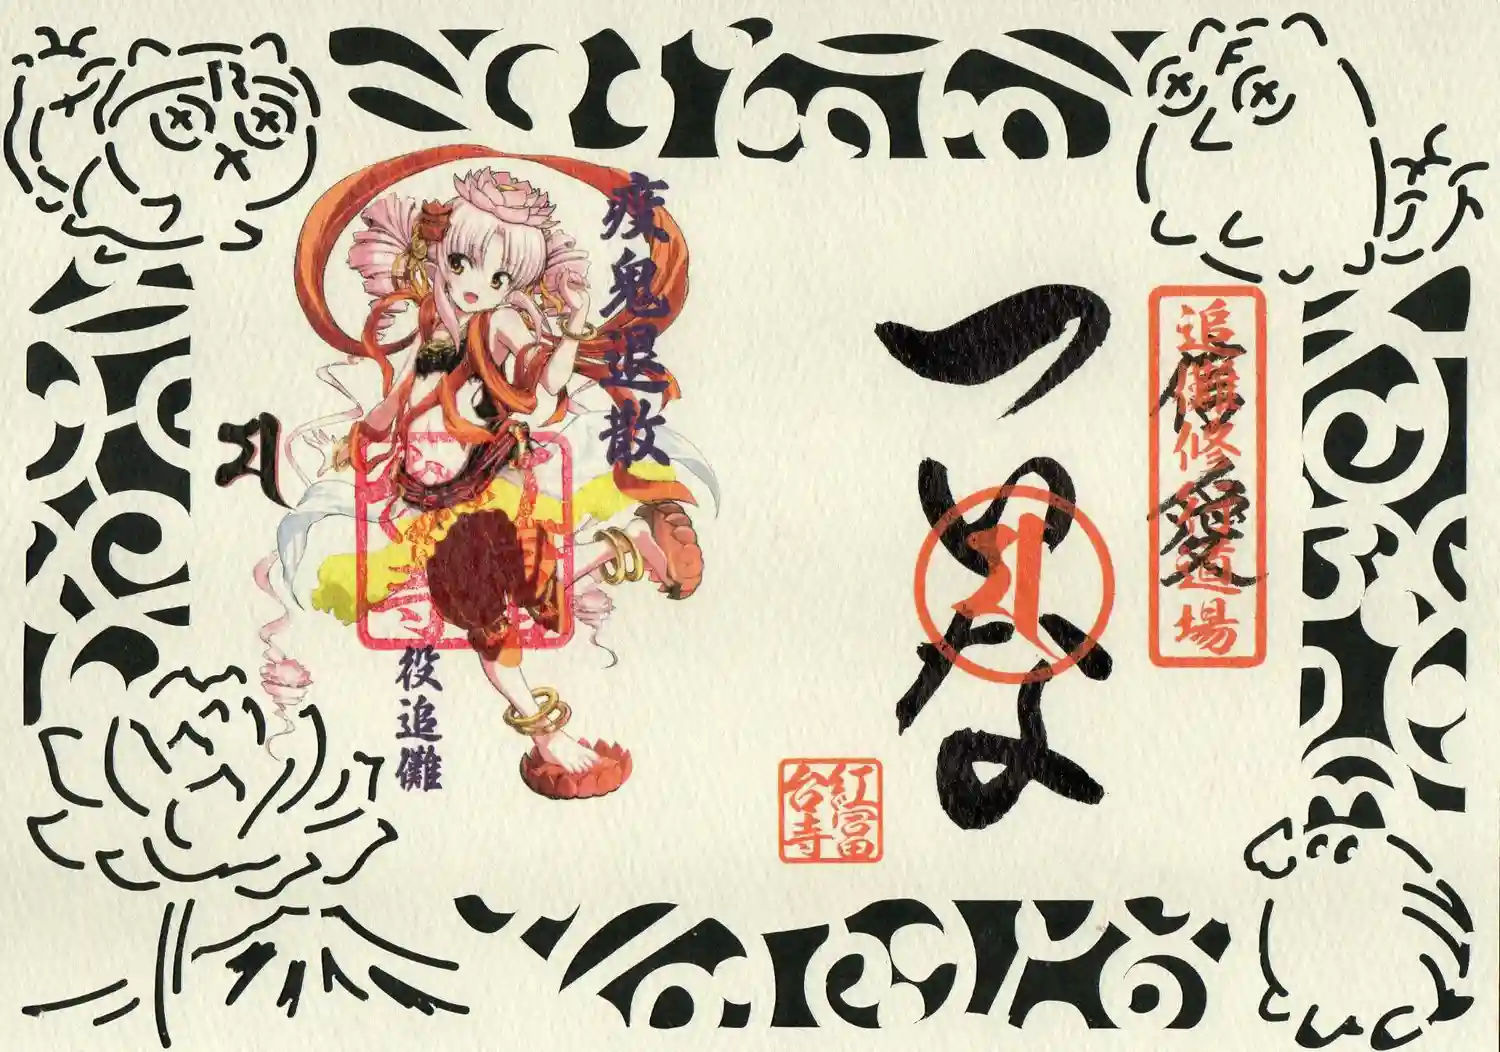 追儺修行道場
儺
愛
つ
い
な
紅冨
台寺
疫鬼退散
役追儺